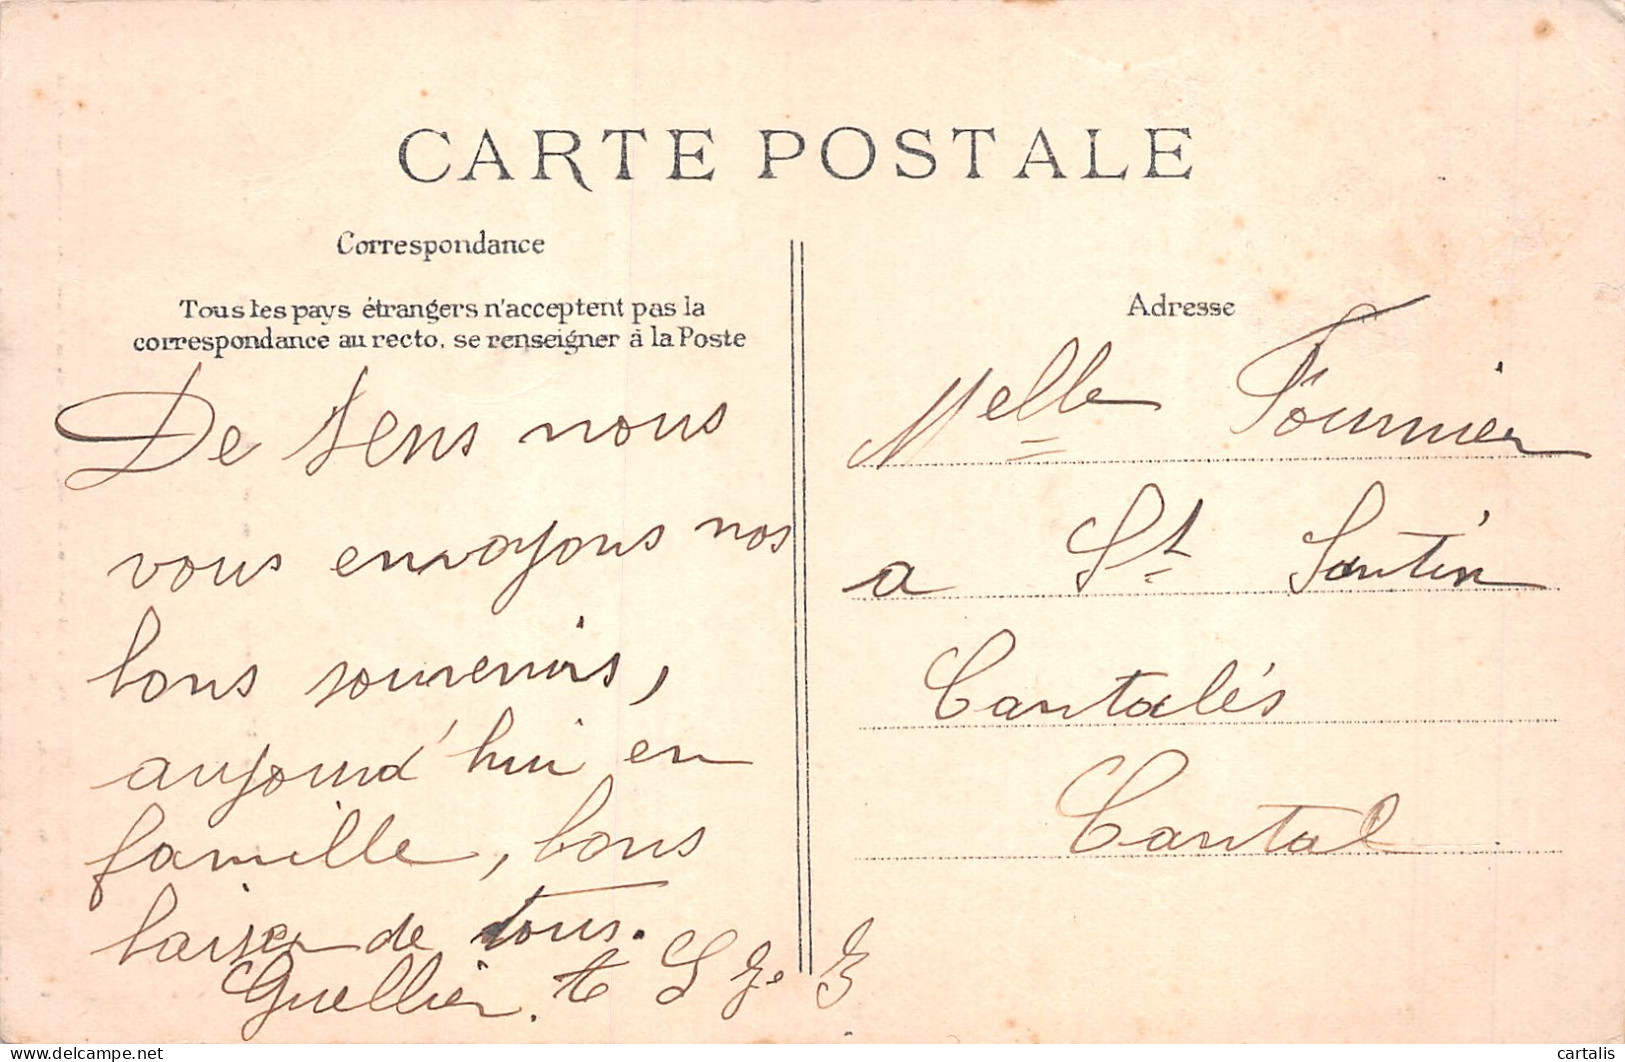 CARTE POSTALE
Correspondance
Tous les pays étrangers n'acceptent pas la
correspondance au recto, se renseigner à la Poste
De Sens nous
vous envoyons nos
bons souvenirs,
aujourd'hui en
famille, bons
baiser de tous.
Guellier. 
Adresse
Melle Fournier
a St Santin
Cantalés
Cantal
delcampe.net
cartalis